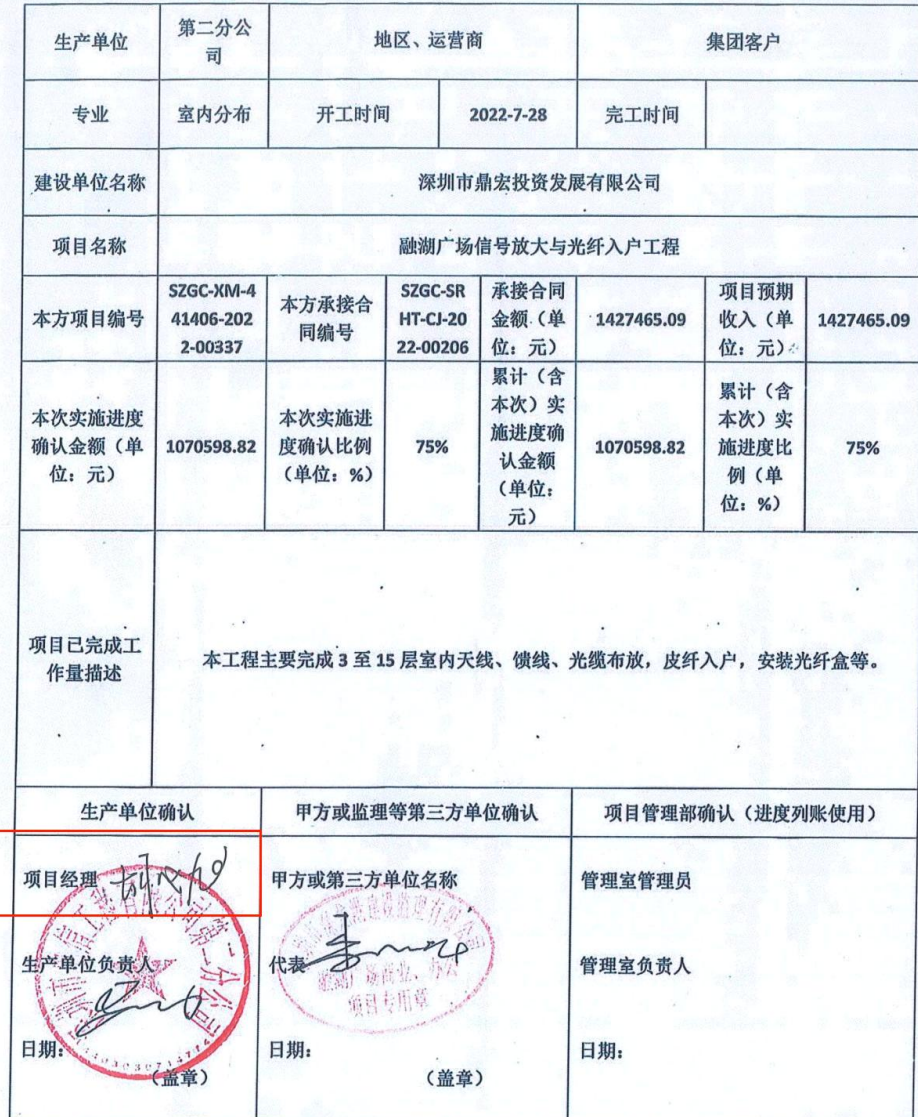 生产单位
第二分公
司
地区、运营商
集团客户
专业
室内分布
开工时间
2022-7-28
完工时间
建设单位名称
深圳市鼎宏投资发展有限公司
项目名称
融湖广场信号放大与光纤入户工程
本方项目编号
SZGC-XM-4
41406-202
2-00337
本方承接合
同编号
SZGC-SR
HT-CJ-20
22-00206
承接合同
金额（单
位：元）
1427465.09
项目预期
收入（单
位：元）
1427465.09
本次实施进度
确认金额（单
位：元）
1070598.82
本次实施进
度确认比例
（单位：%）
75%
累计（含
本次）实
施进度确
认金额
（单位：
元）
1070598.82
累计（含
本次）实
施进度比
例（单
位：%）
75%
项目已完成工
作量描述
本工程主要完成 3 至 15 层室内天线、馈线、光缆布放，皮纤入户，安装光纤盒等。
生产单位确认
甲方或监理等第三方单位确认
项目管理部确认（进度列账使用）
项目经理
生产单位负责人
日期：
（盖章）
甲方或第三方单位名称
代表
融湖广场商业、办公
项目专用章
日期：
（盖章）
管理室管理员
管理室负责人
日期：